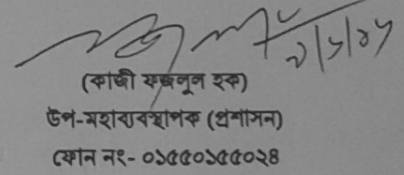 (কাজী ফজলুল হক)
উপ-মহাব্যবস্থাপক (প্রশাসন)
ফোন নং- ০১৫৫০১৫৫০২৪